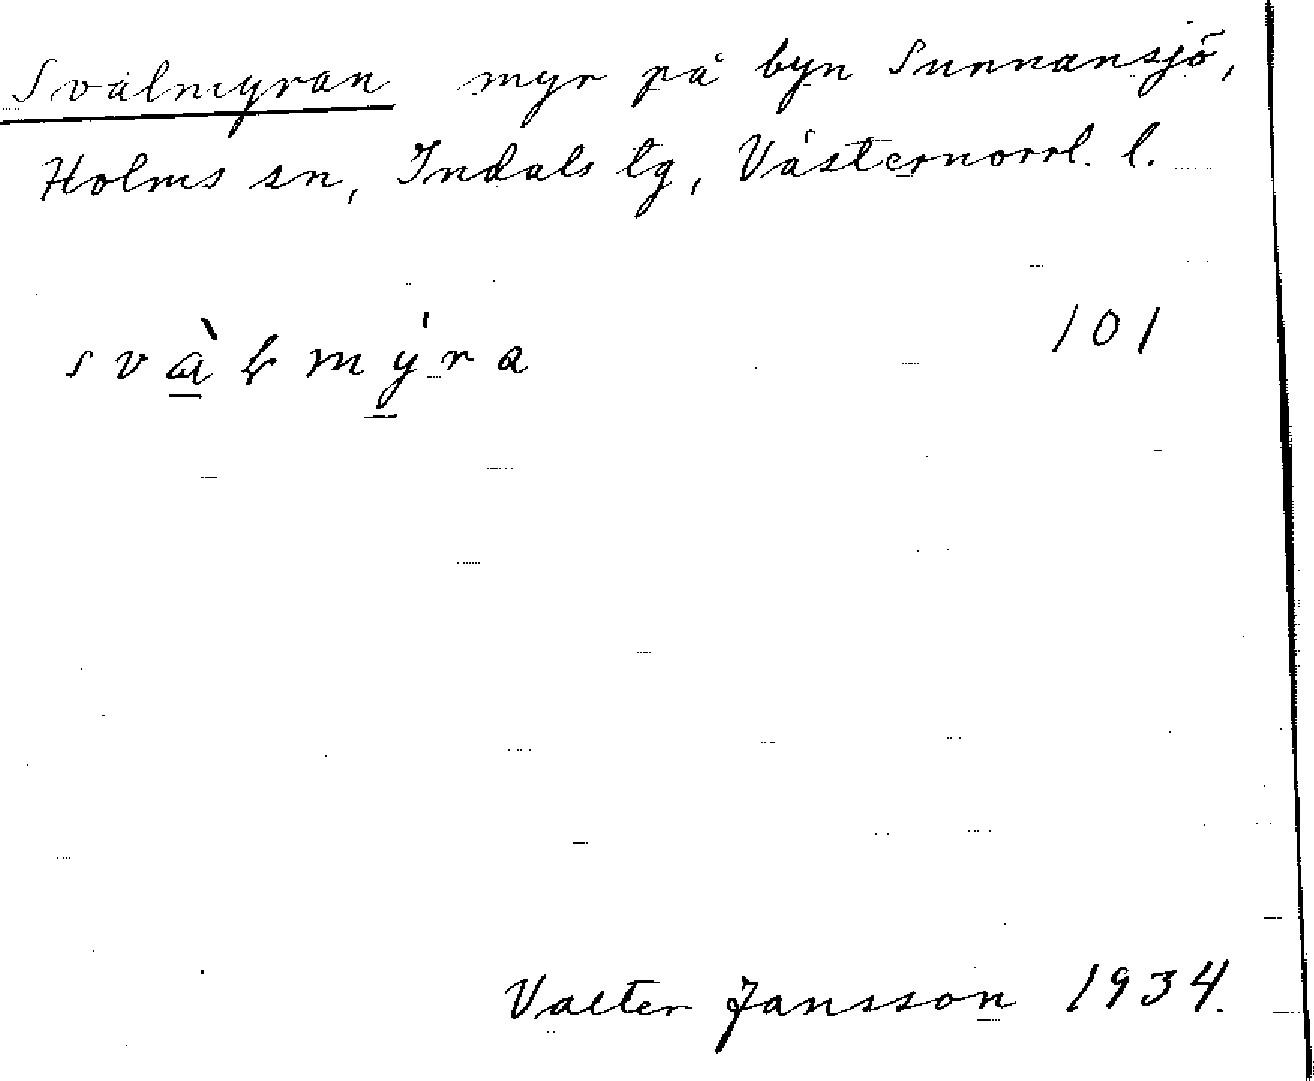 Svalmyran myr på byn Sunnansjö,
Holms sn, Indals tg, Västernorrl. l.
101
Valter Jansson 1934.